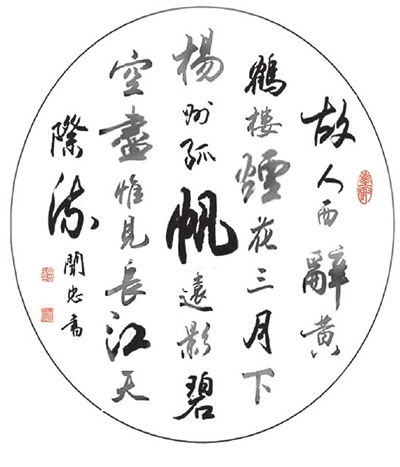 故人西辭黄
鶴樓煙花三月下
楊州孤帆遠影碧
空盡惟見長江天
際流聞忠書